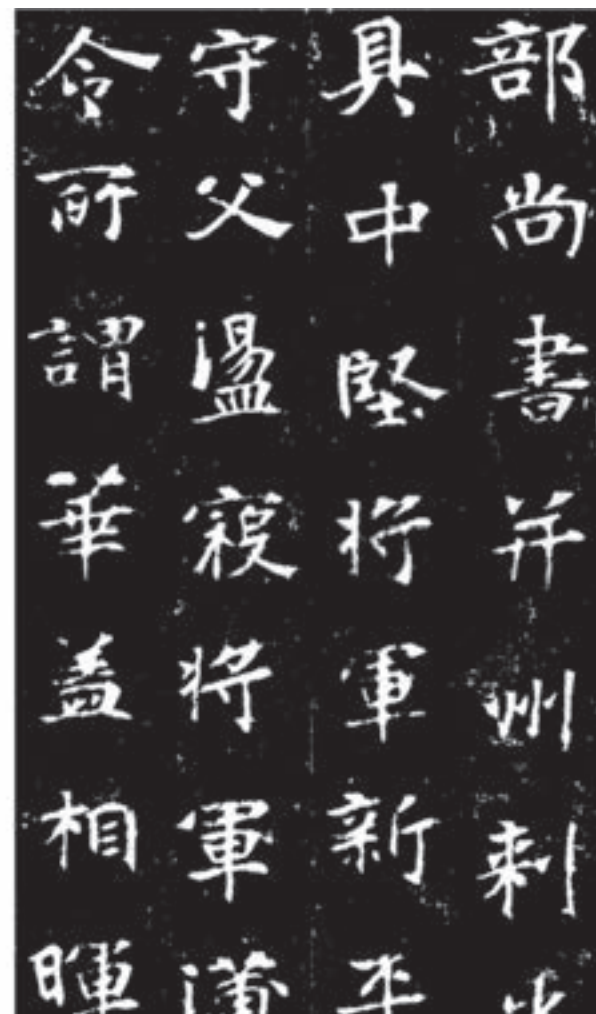 部尚書并州刺史
具中堅将軍新平
守父盪寇将軍蒲
令所謂華盖相暉